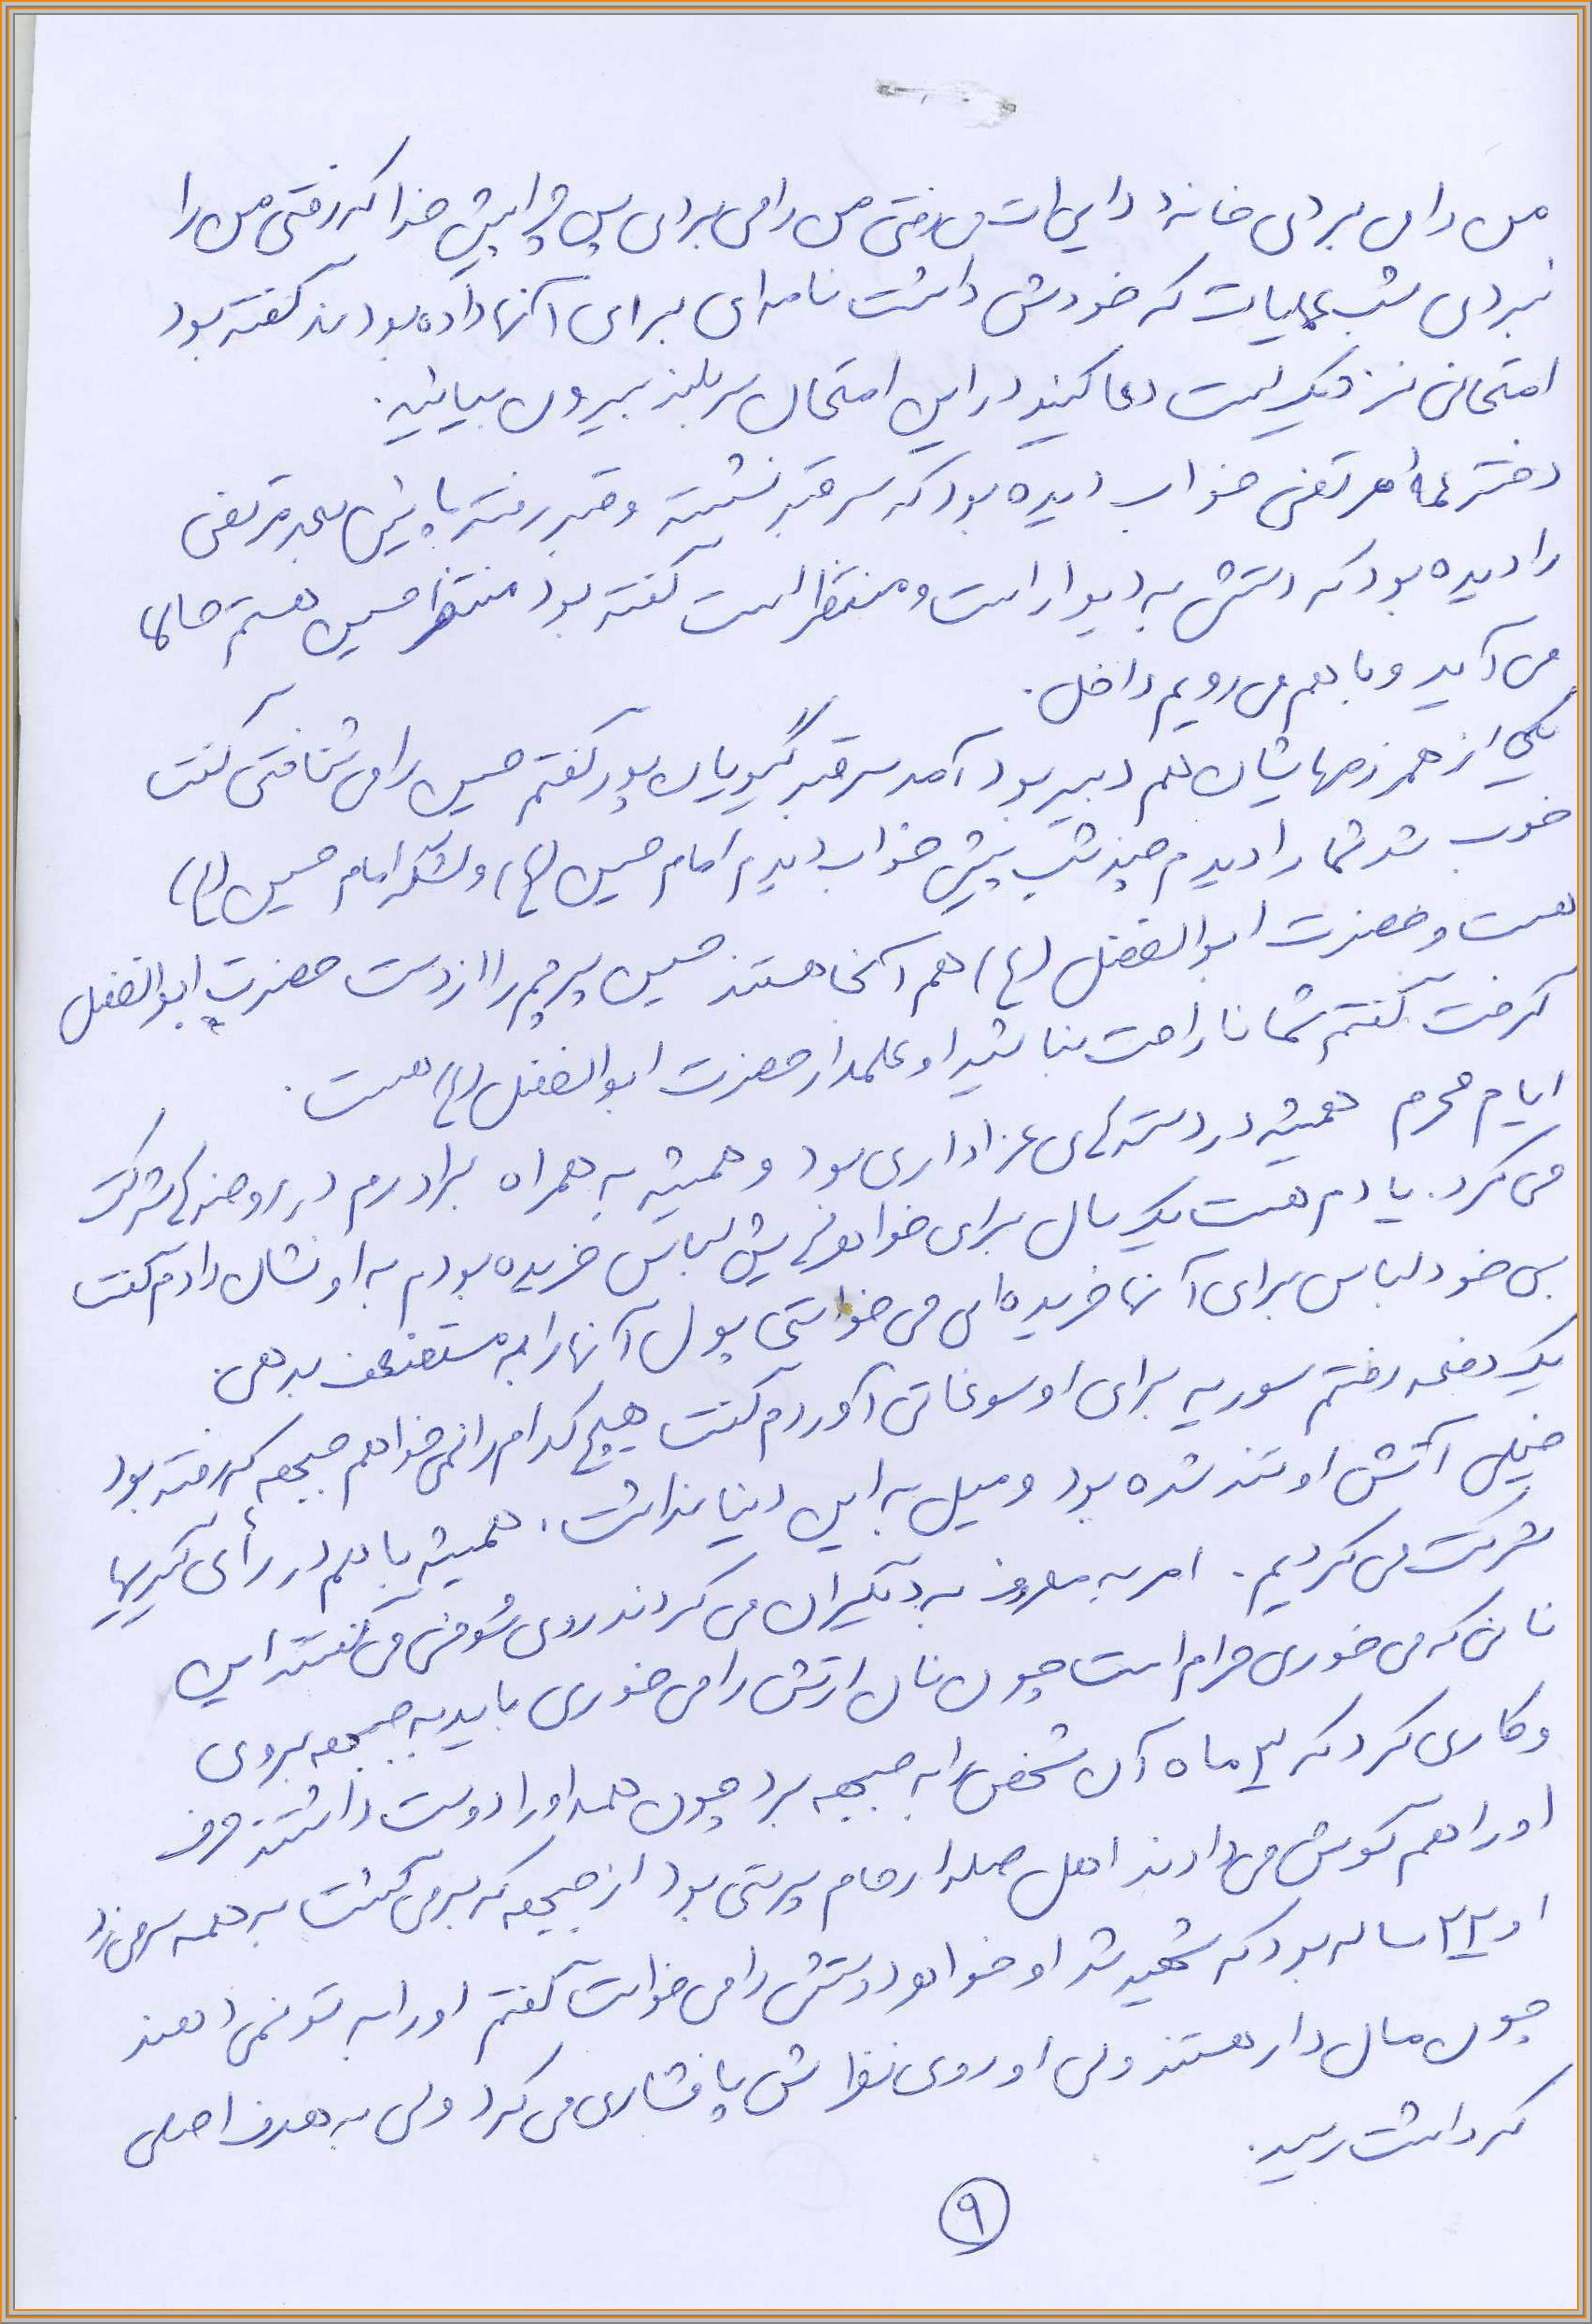 من را می بردی خانهٔ دایی ات می رفتی من را می بردی پس چرا پیش خدا که رفتی من را
نبردی شب عملیات که خودش داشت نامه ای برای آنها داده بودند گفته بود
امتحانی نزدیک است دعا کنید در این امتحان سربلند بیرون بیائیم.
دختر عمهٔ مرتضی خواب دیده بود که سر قبر نشسته و قبر رفته پائین بعد مرتضی
را دیده بود که دستش به دیوار است و منتظر است گفته بود منتظر حسین هستم حالا
می آید و با هم می رویم داخل.
یکی از همرزمهایشان هم دبیر بود آمد سر قبر گیویان پور گفتم حسین را می شناختی گفت
خوب شد شما را دیدم چند شب پیش خواب دیدم امام حسین (ع) و لشکر امام حسین (ع)
هست و حضرت ابوالفضل (ع) هم آنجا هستند حسین پرچم را از دست حضرت ابوالفضل
گرفت گفتم شما ناراحت نباشید او علمدار حضرت ابوالفضل (ع) هست.
ایام محرم همیشه در دسته های عزاداری بود و همیشه به همراه برادرم در روضه ها شرکت
می کرد. یادم هست یک سال برای خواهرهایش لباس خریده بودم به او نشان دادم گفت
بی خود لباس برای آنها خریده ای می خواستی پول آنها را به مستضعف بدهی.
یک دفعه رفتم سوریه برای او سوغاتی آوردم گفت هیچ کدام را نمی خواهم جبهه که رفته بود
خیلی آتش او تند شده بود و میل به این دنیا نداشت. همیشه با هم در رأی گیریها
شرکت می کردیم. امر به معروف به دیگران می کردند روی شوخی می گفتند این
نانی که می خوری حرام است چون نان ارتش را می خوری باید به جبهه بروی
و کاری کرد که ۳ ماه آن شخص را به جبهه برد چون همه او را دوست داشتند حرف
او را هم گوش می دادند اهل صله ارحام پرستی بود از جبهه که برمی گشت به همه سر می زد
او ۲۲ ساله بود که شهید شد او خواهر دوستش را می خواست گفتم او را به تو نمی دهند
چون مال دار هستند ولی او روی نظرش پافشاری می کرد ولی به هدف اصلی
که داشت رسید.
۹